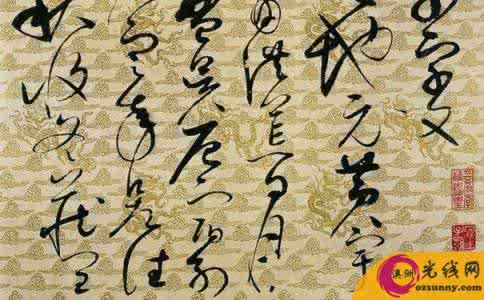 千字文
地元黄宇
宙洪荒日月
盈昃辰宿列
寒来暑往
秋收冬藏閏
澳洲 光线网
ozsunny.com